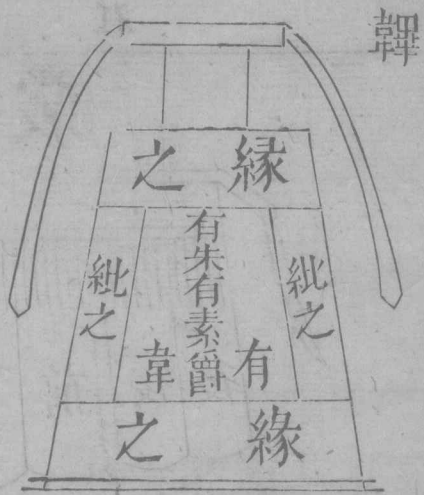 韠
緣之
紕之
有朱有素爵
有韋
紕之
緣之